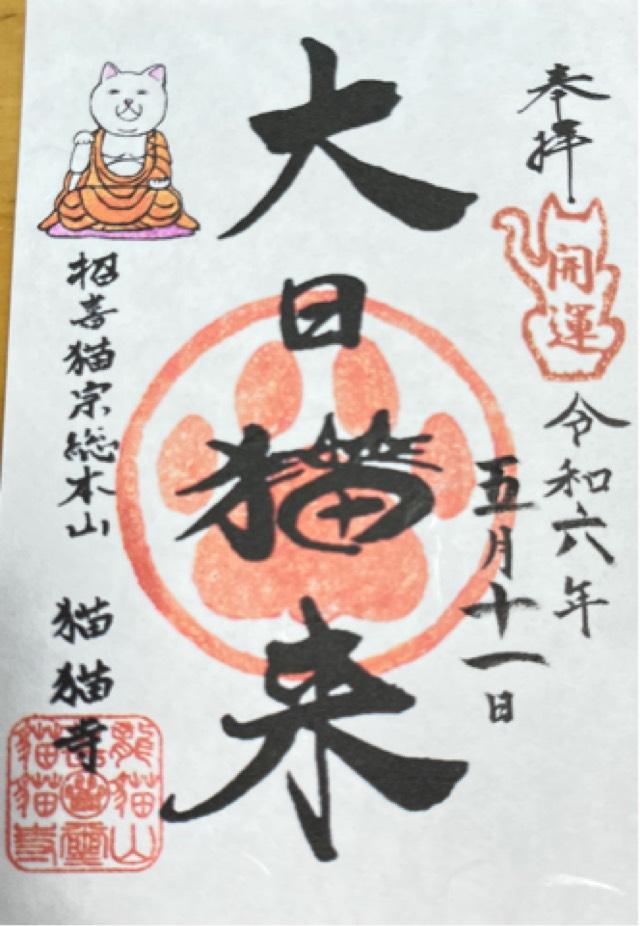 奉拝
開運
令和六年
五月十一日
大日猫来
招喜猫宗総本山 猫猫寺